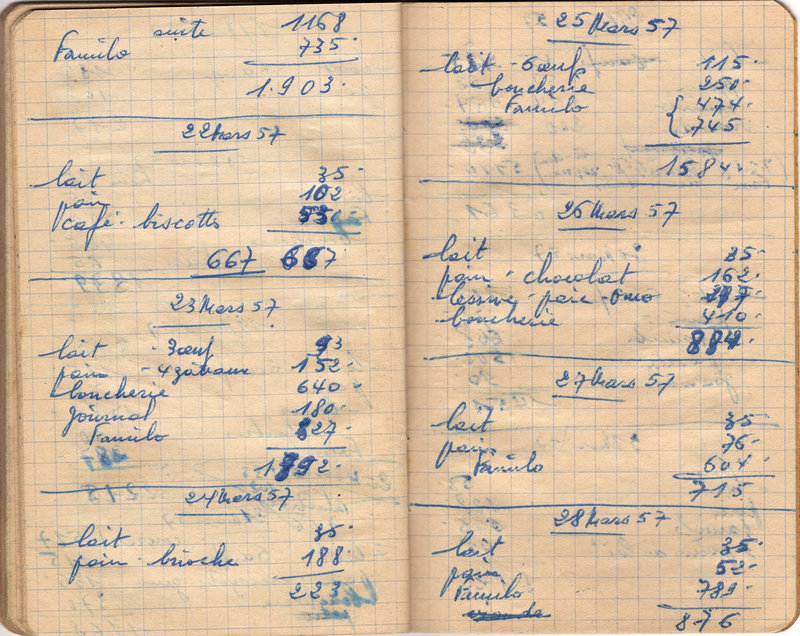 suite 1168
Familo 735
1.903
22 Mars 57
lait 35
pain 102
café - biscotts 530
667 667
23 Mars 57
lait - 3 œuf 93
pain - 4 gâteaux 152
boucherie 640
journal 180
Familo 827
1.892
24 Mars 57
lait 35
pain - brioche 188
223
25 Mars 57
lait - 6 œuf 115
boucherie 250
Familo { 474
745
1584
26 Mars 57
lait 35
pain - chocolat 162
lessive - paic - Omo 277
boucherie 410
884
27 Mars 57
lait 35
pain 76
Familo 604
715
28 Mars 57
lait 35
pain 52
Familo 789
876